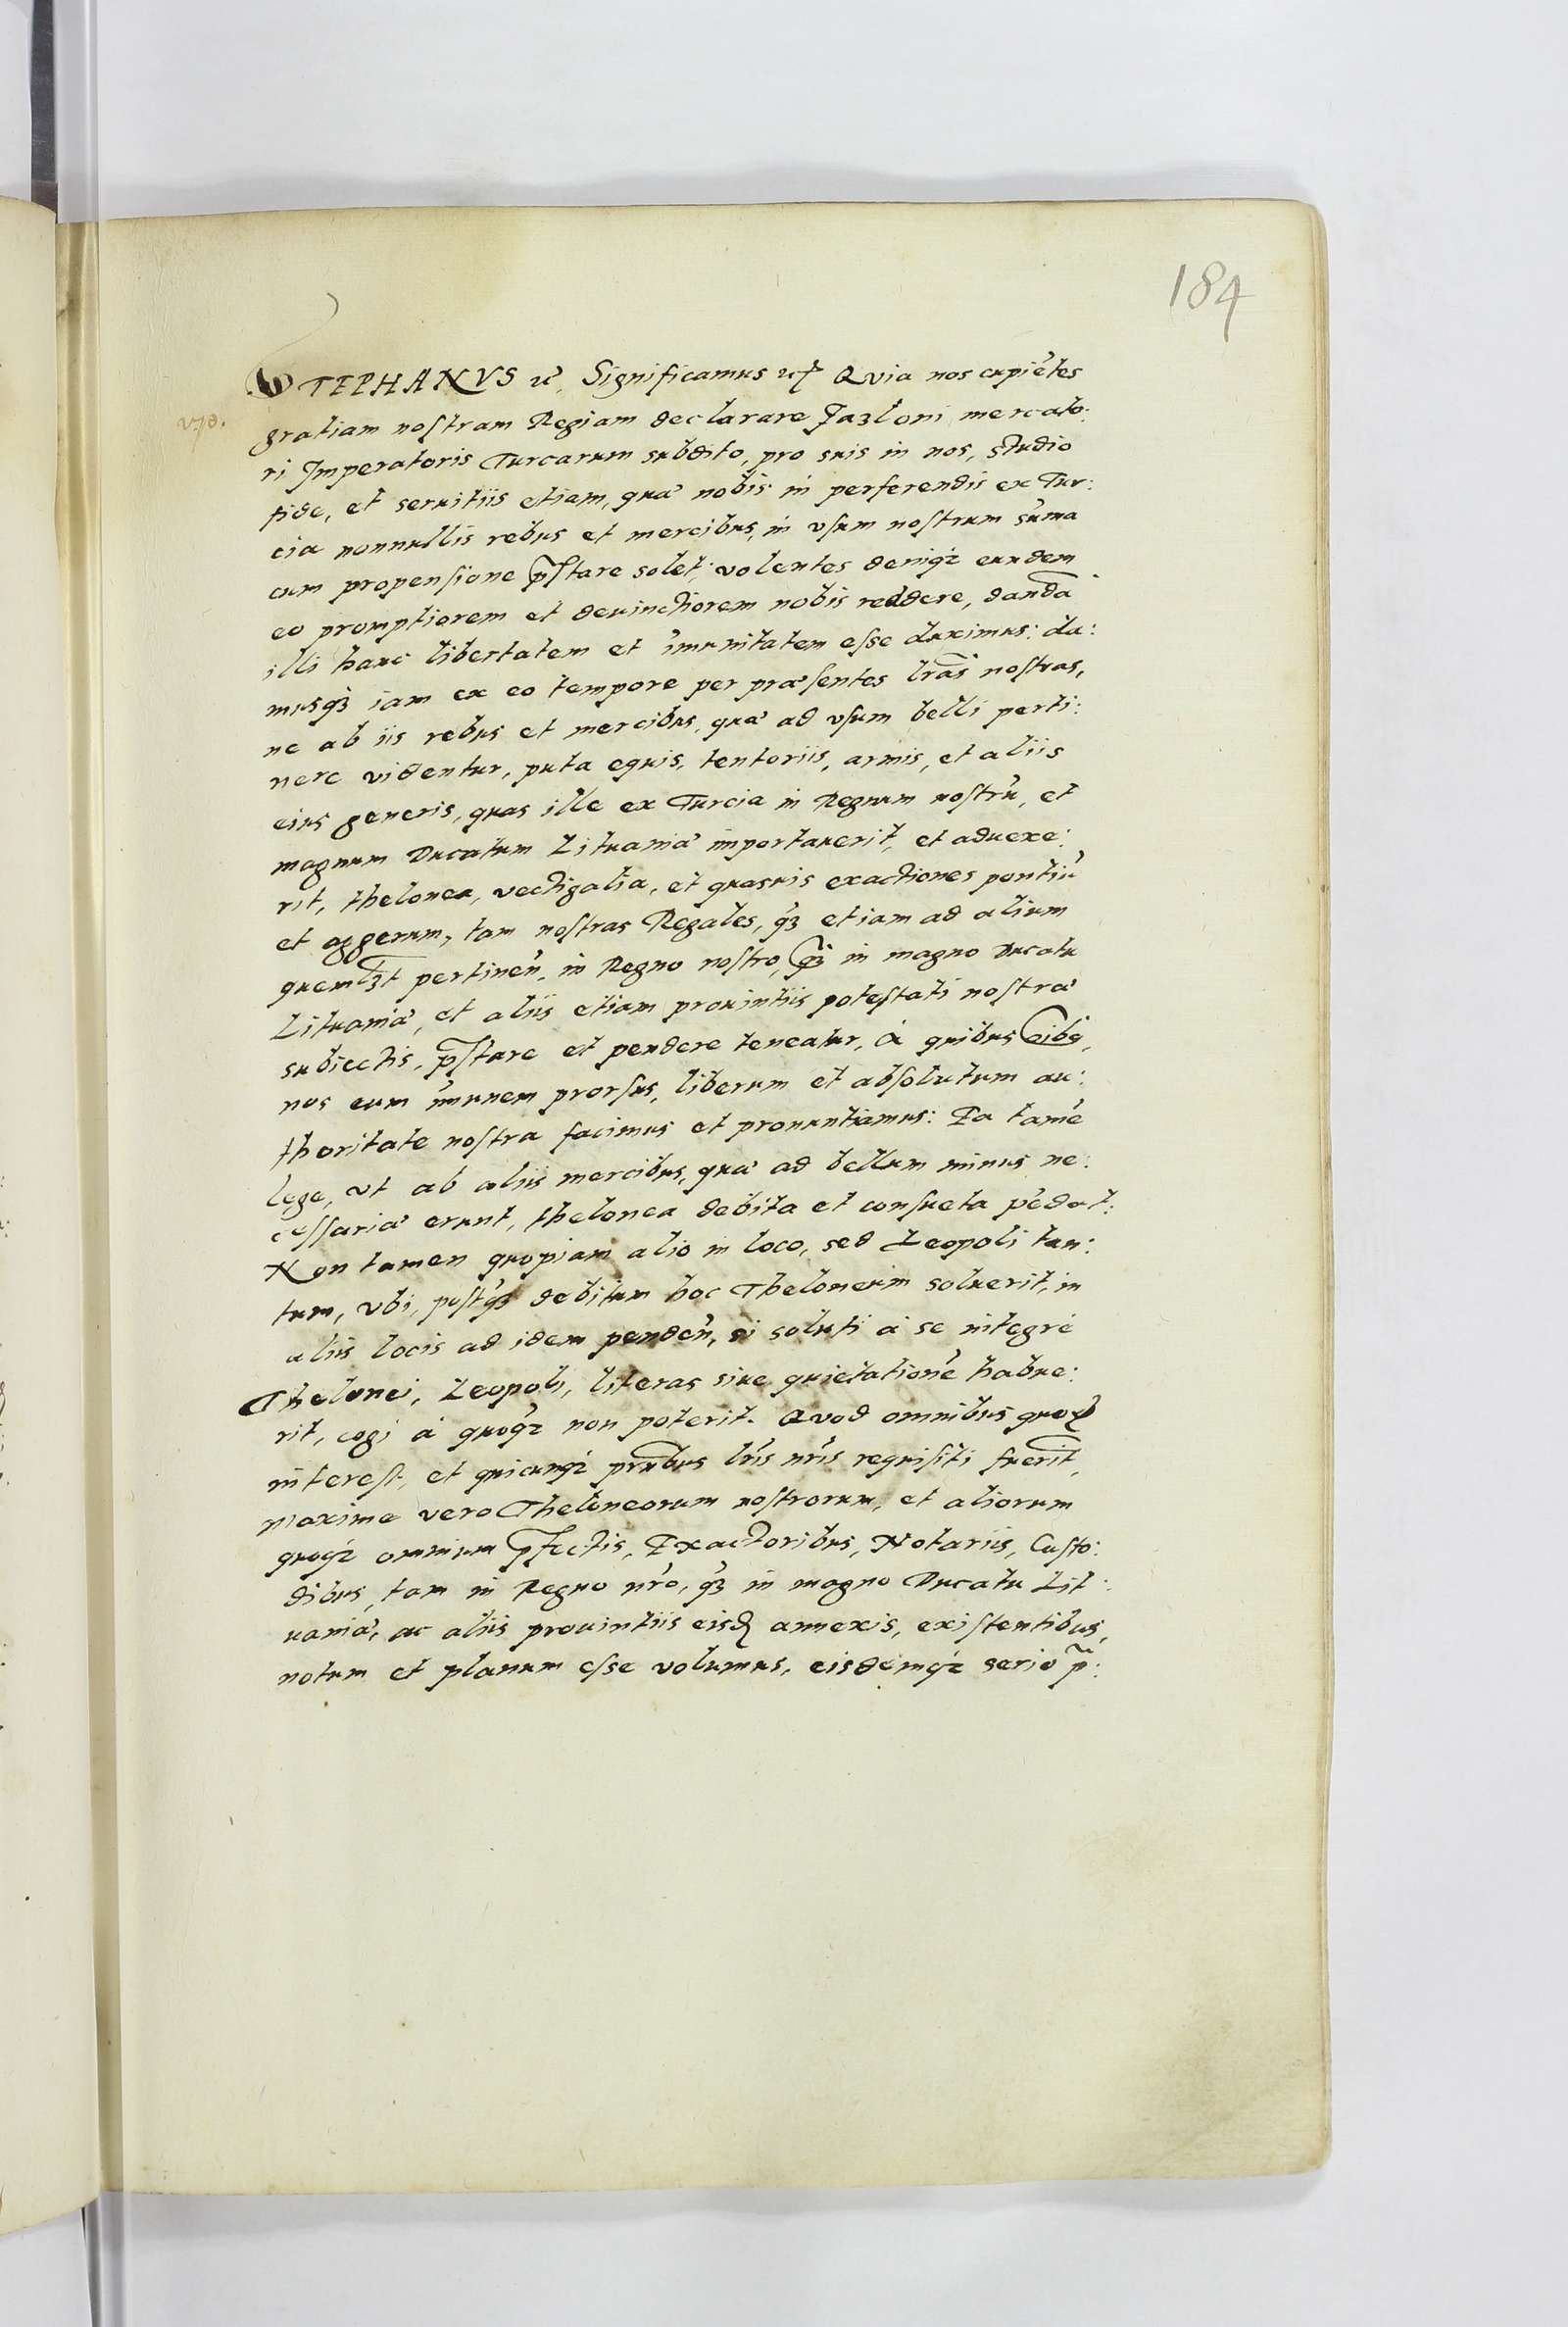 184
STEPHANVS etc̃, Significamus etc̃ Qvia nos cupie̅tes
gratiam nostram Regiam declarare Jazloni mercato:
ri Imperatoris Turcarum subdito, pro suis in nos, studio
fide, et seruitiis etiam, quæ nobis in perferendis ex Tur:
cia nonnullis rebus et mercibus, in vsum nostrum su̅ma
cum propensione p̅stare solet; volentes deniqз eundem
eo promptiorem et deuinctiorem nobis reddere, danda̅
illi hanc libertatem et im̅unitatem esse duximus: da:
musqз iam ex eo tempore per præsentes lr̅as nostras,
ne ab iis rebus et mercibus, quæ ad vsum belli perti:
nere videntur, puta equis, tentoriis, armis, et aliis
eius generis, quas ille ex Turcia in Regnum nostru̅, et
magnum Ducatum Lituaniæ importauerit, et aduexe:
rit, thelonea, vectigalia, et quasuis exactiones pontiu̅
et aggerum, tam nostras Regales, qз̃ etiam ad alium
quemlзt pertinen̅, in Regno nostro, qз̃ in magno Ducatu
Lituaniæ, et aliis etiam prouintiis potestati nostræ
subiectis, p̅stare et pendere teneatur, à quibus oibꝯ,
nos eum im̅unem prorsus, liberum et absolutum au:
thoritate nostra facimus et pronuntiamus: Ea tame̅
lege, vt ab aliis mercibus, quæ ad bellum minus ne:
cessariæ erunt, thelonea debita et consueta pe̅dat:
Non tamen quopiam alio in loco, sed Leopoli tan:
tum, vbi, postqз̃ debitum hoc Theloneum soluerit, in
aliis locis ad idem penden̅, si soluti à se integre
Thelonei, Leopoli, literas siue quietatione̅ habue:
rit, cogi à quoqз non poterit. Qvod omnibus quoꝝ
interest, et quicunqз pn̅tibus lr̅is nr̅is requisiti fueri̅t,
maxime vero Theloneorum nostrorum, et aliorum
quoqз omnium p̅fectis, Exactoribus, Notariis, Custo:
dibus, tam in Regno nr̅o, qз̃ in magno Ducatu Lit:
uaniæ, ac aliis prouintiis eisd annexis, existentibus,
notum et planum esse volumus, eisdemqз serio p̅: